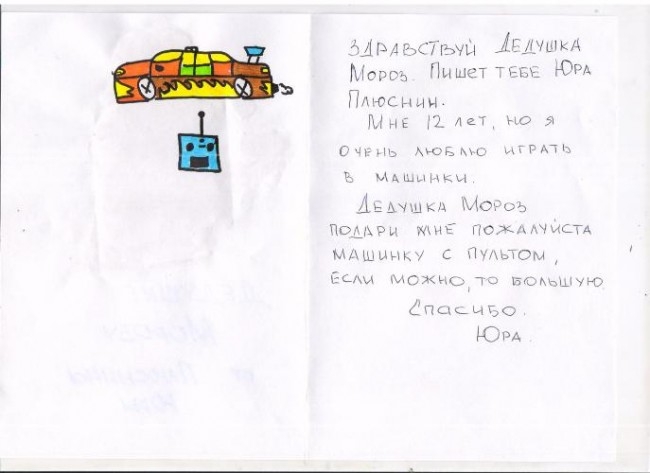 ЗДРАВСТВУЙ ДЕДУШКА
МОРОЗ. ПИШЕТ ТЕБЕ ЮРА
ПЛЮСНИН.
МНЕ 12 ЛЕТ, НО Я
ОЧЕНЬ ЛЮБЛЮ ИГРАТЬ
В МАШИНКИ.
ДЕДУШКА МОРОЗ
ПОДАРИ МНЕ ПОЖАЛУЙСТА
МАШИНКУ С ПУЛЬТОМ,
ЕСЛИ МОЖНО, ТО БОЛЬШУЮ.
СПАСИБО.
ЮРА.